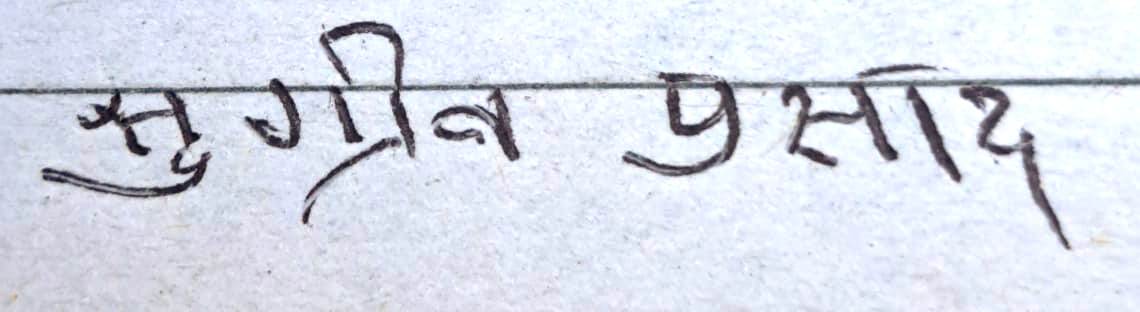 सुग्रीव प्रसाद